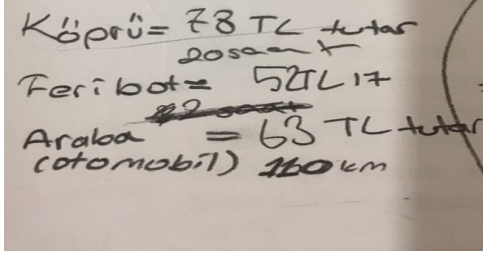 Köprü= 78 TL tutar
20saat
Feribot= 52TL 17
Araba = 63 TL tutar
(otomobil) 160 km